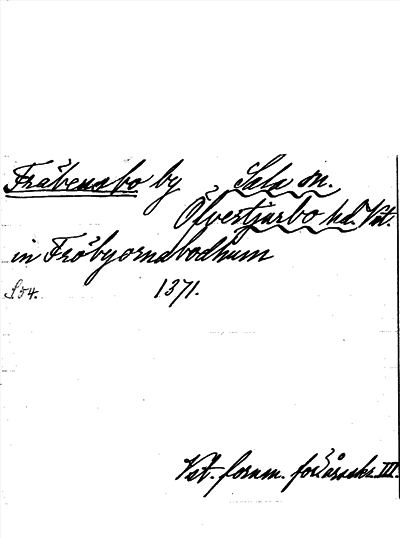 Fröbensbo by Sala sn.
Övertjärbo hd. Vst.
in Fröbyornabodhum
S 54. 1371.
Vst. fornm. för:s årsskr. III.